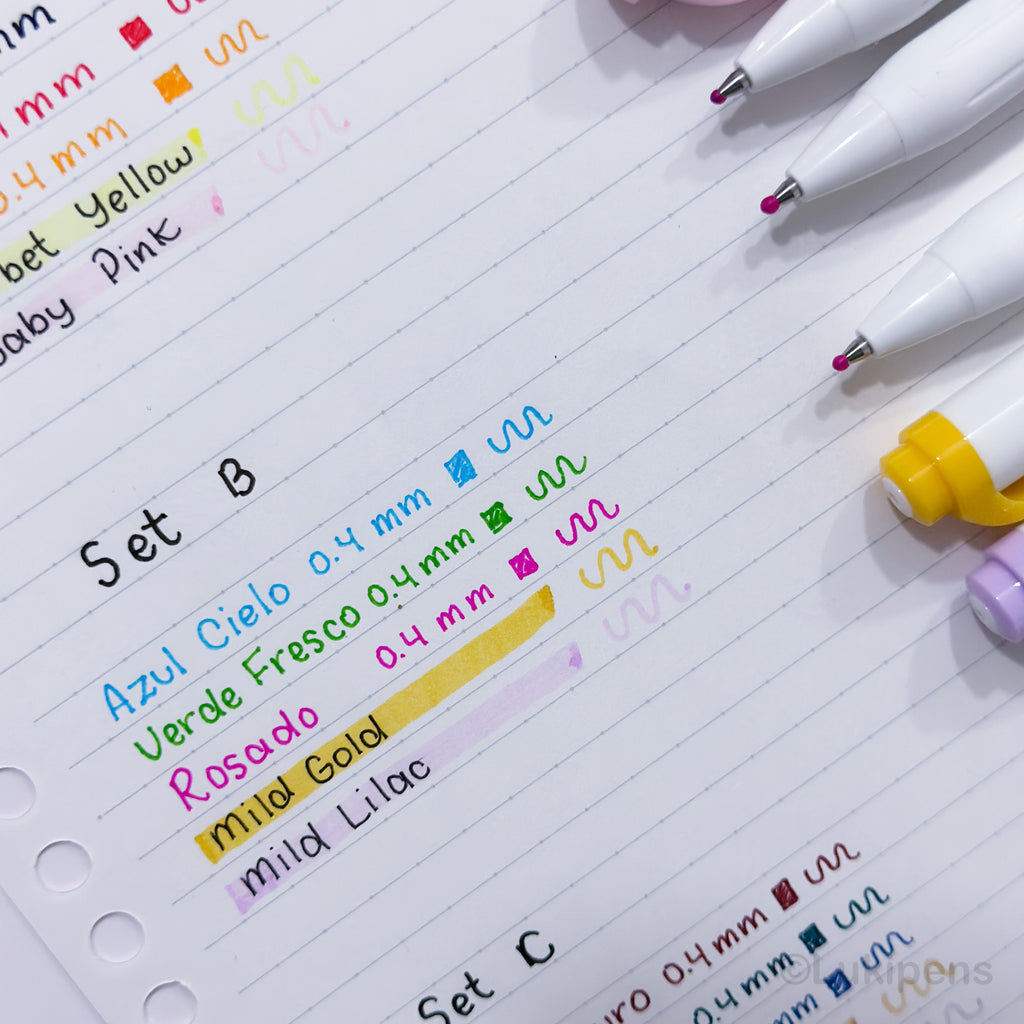 mm
mm
0.4 mm
bet Yellow
Baby Pink
Set B
Azul Cielo 0.4 mm
Verde Fresco 0.4 mm
Rosado 0.4 mm
Mild Gold
Mild Lilac
Set C
uro 0.4 mm
0.4 mm
mm
©Lukipens